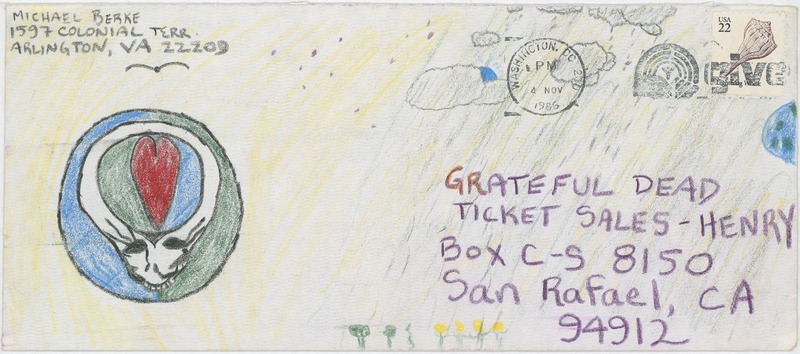 MICHAEL BERKE
1597 COLONIAL TERR.
ARLINGTON, VA 22209
WASHINGTON, DC
PM
6 NOV
1986
USA
22
GIVE
GRATEFUL DEAD
TICKET SALES - HENRY
Box C-S 8150
San Rafael, CA
94912